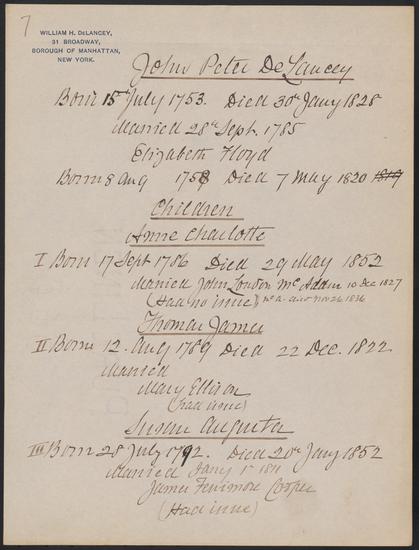 7
WILLIAM H. DELANCEY,
31 BROADWAY,
BOROUGH OF MANHATTAN,
NEW YORK.
John Peter DeLancey
Born 15th July 1753. Died 30th Jany 1828
Married 28th Sept. 1785
Elizabeth Floyd
Born 8 Aug 1758 Died 7 May 1820 1819
Children
Anne Charlotte
I Born 17 Sept 1786 Died 29 May 1852
Married John Loudon McAdam 10 Dec 1827
(Had no issue) McA. died Nov 26 1836
Thomas James
II Born 12. Aug 1789 Died 22 Dec. 1822
Married
Mary Ellison
(had issue)
Susan Augusta
III Born 28 July 1792. Died 20th Jany 1852
Married Jany 1st 1811
James Fenimore Cooper
(Had issue)